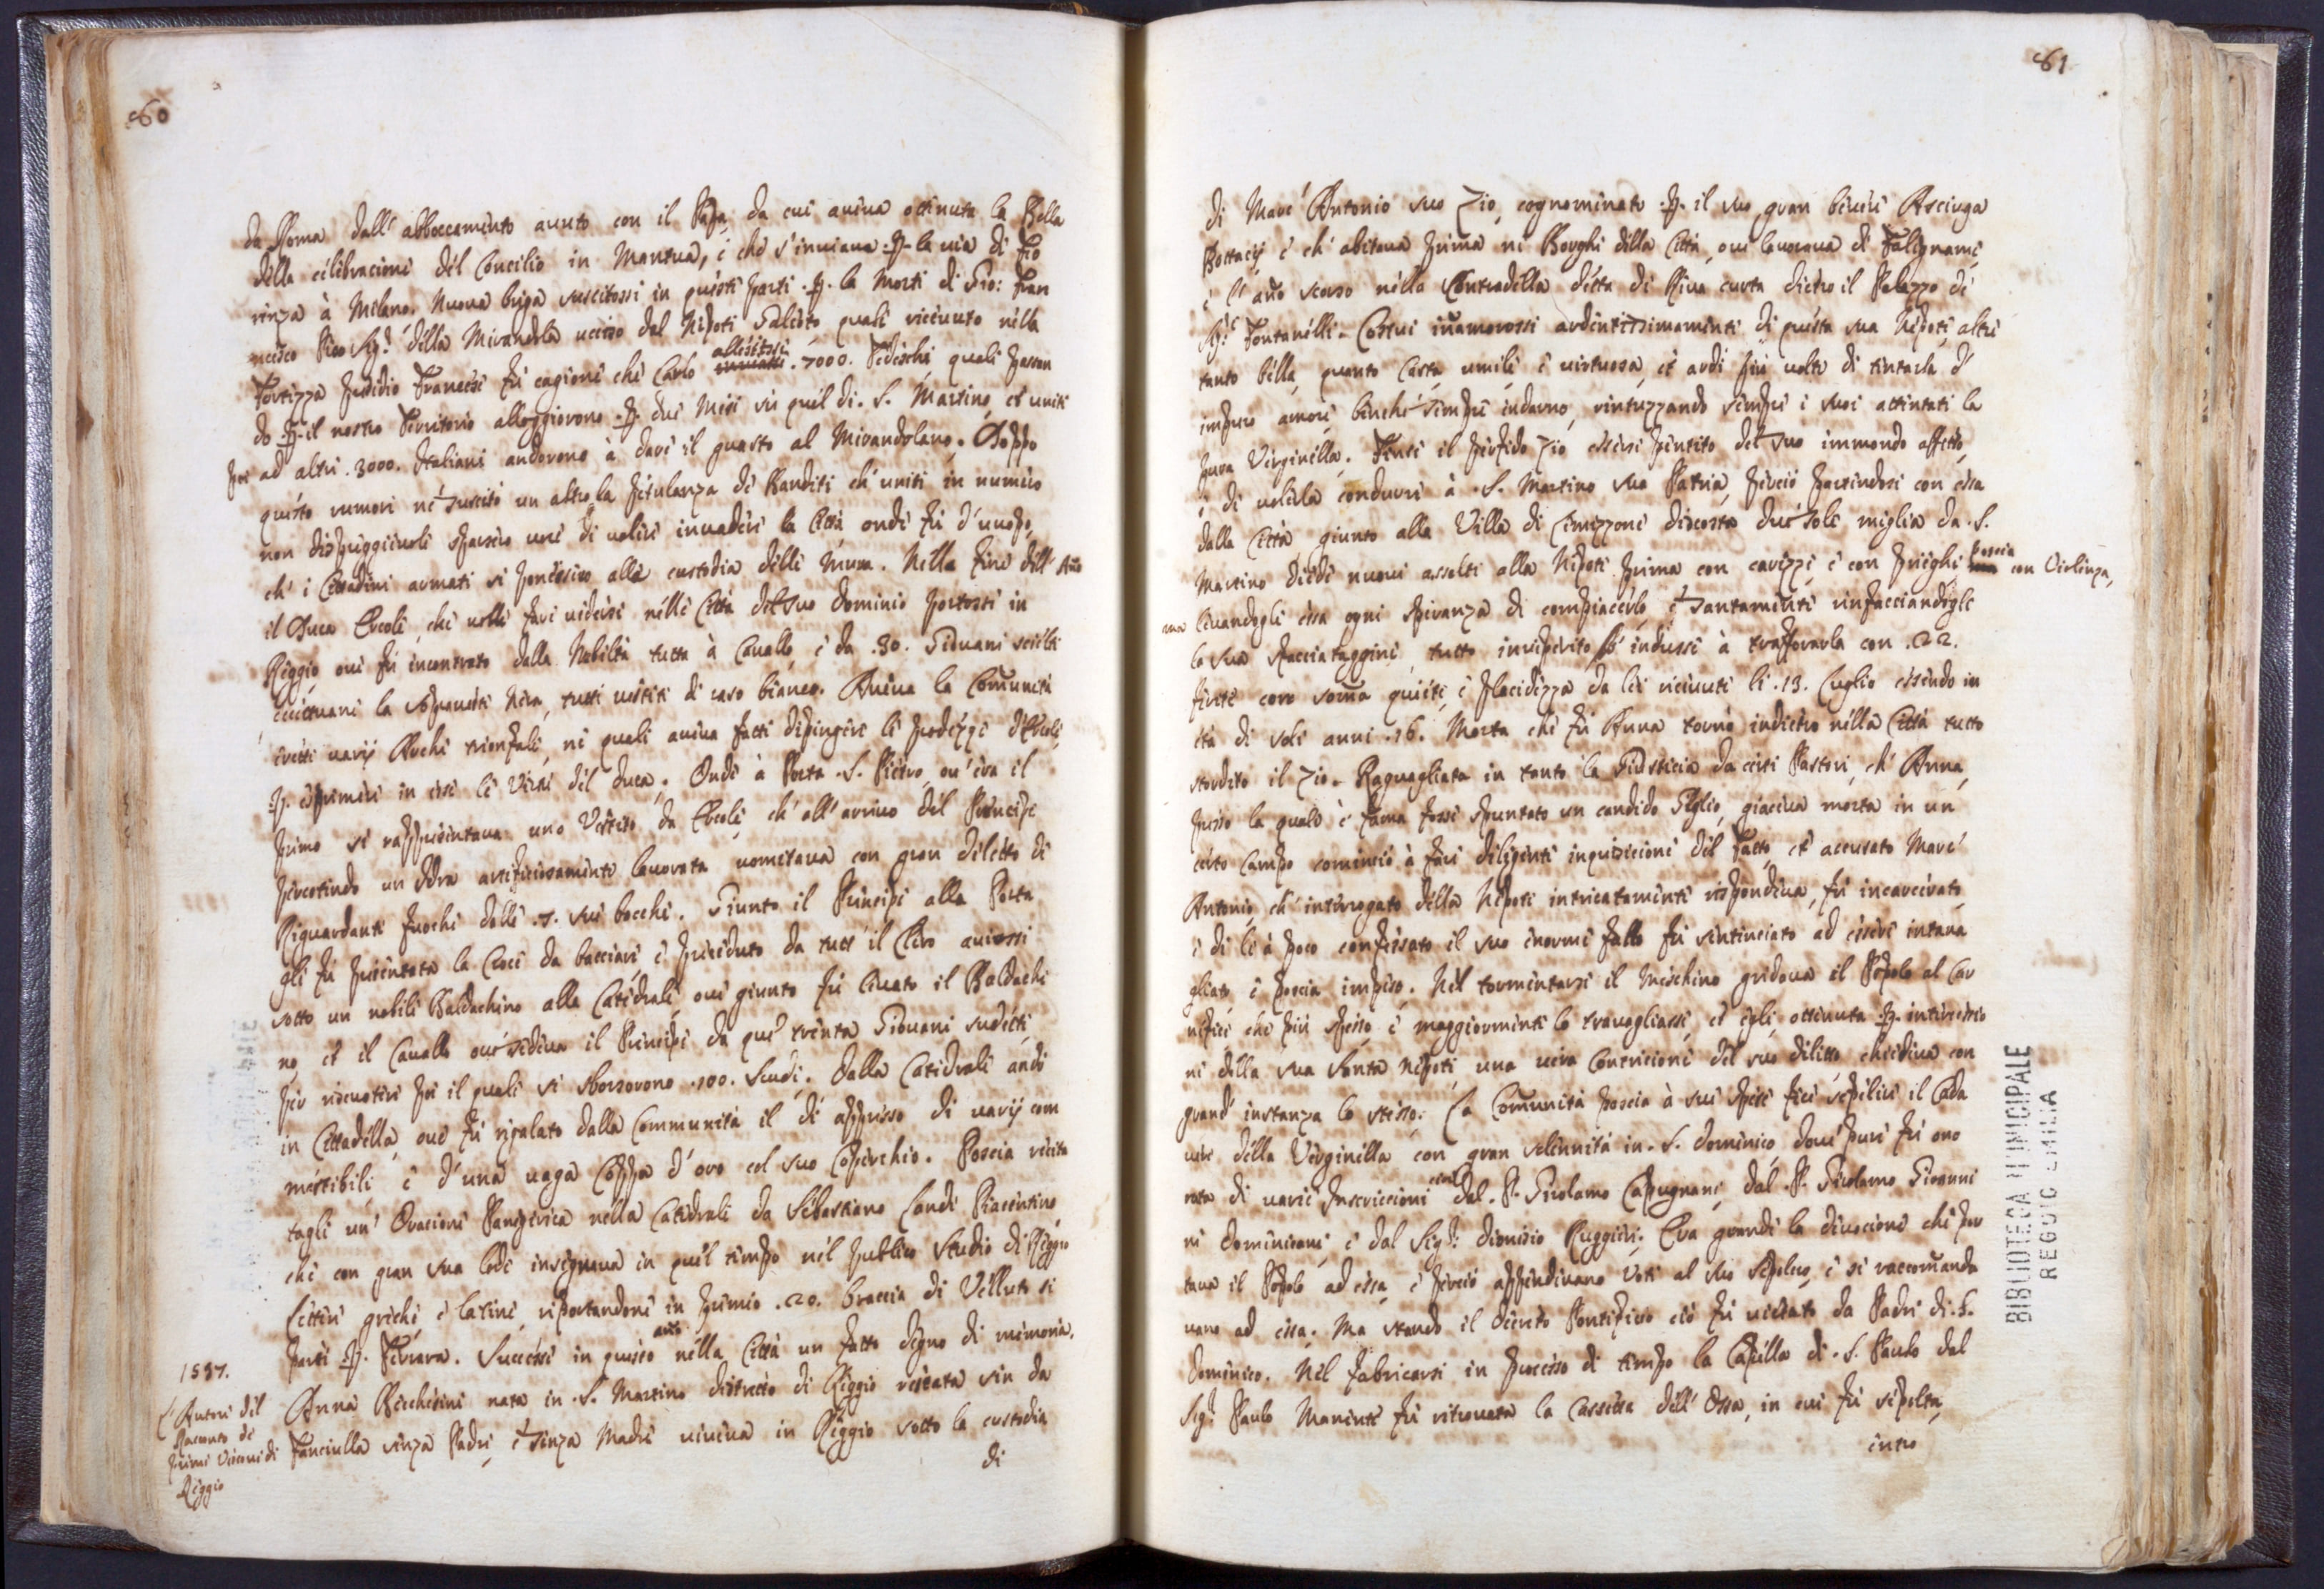 60
da Roma dall' abboccamento auuto con il Papa, da cui aueua ottenuta la Bolla
della celebracione del Concilio in Mantua, e che s'inuiaua p. la uia di Fio
renza à Milano. Nuoua briga suscitossi in queste parti p. la morte di Gio: Fran
cesco Pico Sig.r della Mirandola ucciso dal Nepote Galeoto quale riceuuto nella
Fortezza presidio Francese fù cagione che Carlo allestisse 7000. Tedeschi quali passan
do p. il nostro Territorio alloggiorono p. due Mesi sin quel di S. Martino, et uniti
poi ad altri 3000. Italiani andorono à dare il guasto al Mirandolano. Doppo
questo rumore ne suscitò un altro la petulanza de Banditi ch' uniti in numero
non dispreggieuole sparsero uoce di uolere inuadere la Città onde fù d'uuopo,
ch' i Cittadini armati si ponessero alla custodia delle Mura. Nella fine dell' Año
il Duca Ercole, che uolle fare uedersi nelle Città del suo dominio portossi in
Reggio oue fù incontrato dalla Nobiltà tutta à Cauallo, e da 30. Giouani scielti
eccettuane la sopraueste Nera, tutti uestiti di raso bianco. Aueua la Comunità
eretti uarij Archi trionfali, ne quali aueua fatti dipingere le prodezze d'Ercole,
p. esprimere in esse le Virtù del Duca. Onde à Porta S. Pietro, ou' era il
primo si rappresentaua uno Vestito da Ercole, ch' all' arriuo del Principe
percotendo un Idra artificiosamente lauorata uomitaua con gran diletto di
Riguardanti fuochi dalle 7. sue bocche. Giunto il Principe alla Porta
gli fù presentata la Croce da bacciare e preceduto da tutt' il Clero auiossi
sotto un nobile Baldachino alla Catedrale, oue giunto fù leuato il Baldachi
no, et il Cauallo oue sedeua il Principe da que' trenta Giouani sudetti,
per riscuotere poi il quale si sborsorono 100. Scudi. Dalla Catedrale andò
in Cittadella, oue fù regalato dalla Communità il dì appresso di uarij com
mestibili, e d' una uaga Coppa d' oro col suo Coperchio. Poscia recito
tagli un' Oracione Panegirica nella Catedrale da Sebastiano Landi Piacentino,
che con gran sua lode insegnaua in quel tempo nel publico Studio di Reggio
Lettere greche, e latine, riportandone in premio 20. braccia di Velluto si
parti p. Ferrara. Successe in questo año nella Città un fatto degno di memoria.
1537. Anna Becchetini nata in S. Martino distretto di Reggio restata sin da
L' Autore del Racconto de primi Vescoui di Reggio
Fanciulla senza Padre, e senza Madre uiueua in Reggio sotto la custodia
di
61
di Marc' Antonio suo Zio, cognominato p. il suo gran beuere Asciuga
Bottacij e ch' abitaua prima ne Borghi della Città, oue lauoraua di Falegname,
e l' año scorso nella Contradella detta di Riua curta dietro il Palazzo de
Sig.ri Fontanelli. Costui iñamorossi ardentissimamente di questa sua Nepote, altre
tanto bella, quanto Casta, umile e uirtuosa, et ardì più uolte di tentarla d'
impuro amore, benche sempre indarno, rintuzzando sempre i suoi attentati la
pura Verginella. Finse il perfido Zio essersi pentito del suo immondo affetto,
e di uolerla condurre à S. Martino sua Patria, perciò partendosi con essa
dalla Città, giunto alla Villa di Cimizzone discosta due sole miglia da S.
Martino diede nuoui assalti alla Nepote prima con carezze e con prieghi poscia con Violenza,
ma leuandogli essa ogni speranza di compiacerlo, e santamente rinfacciandogli
la sua sfacciataggine, tutto inuiperito s' indusse à trafforarla con 22.
ferite coro soma quiete, e placidezza da lei riceuute li 13. Luglio essendo in
età di soli anni 16. Morta che fù Anna tornò indietro nella Città tutto
stordito il Zio. Raguagliata in tanto la Giusticia da certi Pastori, ch' Anna,
presso la quale è fama fosse spuntato un candido Giglio, giaceua morta in un
certo Campo cominciò à fare diligente inquisicione del Fatto, et accusato Marc'
Antonio, ch' interrogato della Nepote intricatamente rispondeua, fù incarcerato,
e di li à poco confessato il suo enorme fallo fù sentenciato ad essere intana
gliato, e poscia impiso. Nel tormentarsi il Meschino gridaua il Popolo al Car
nefice che più spesso e maggiormente lo trauagliasse, et egli, ottenuta p. intercessio
ne della sua Santa Nepote una uera Contricione del suo delitto chiedeua con
grand' instanza lo stesso. La Comunità poscia à sue spese fece sepelire il Cada
uere della Verginella con gran solennità in S. Domenico, doue pure fù ono
rata di uarie Inscriccioni dal P. Girolamo Capugnani, dal P. Girolamo Giouanni
ni Domenicani, e dal Sig.r Dionisio Ruggieri. Era grande la diuocione che por
taua il Popolo ad essa, e perciò appendeuano Voti al suo Sepolcro, e si raccomanda
uano ad essa. Ma stando il decreto Pontificio ciò fù uietato da Padri di S.
Domenico. Nel fabricarsi in processo di tempo la Capella di S. Paulo dal
Sig.r Paulo Manenti fù ritrouata la Cassetta dell' Ossa, in cui fù sepolta,
intro
BIBLIOTECA MUNICIPALE
REGGIO EMILIA